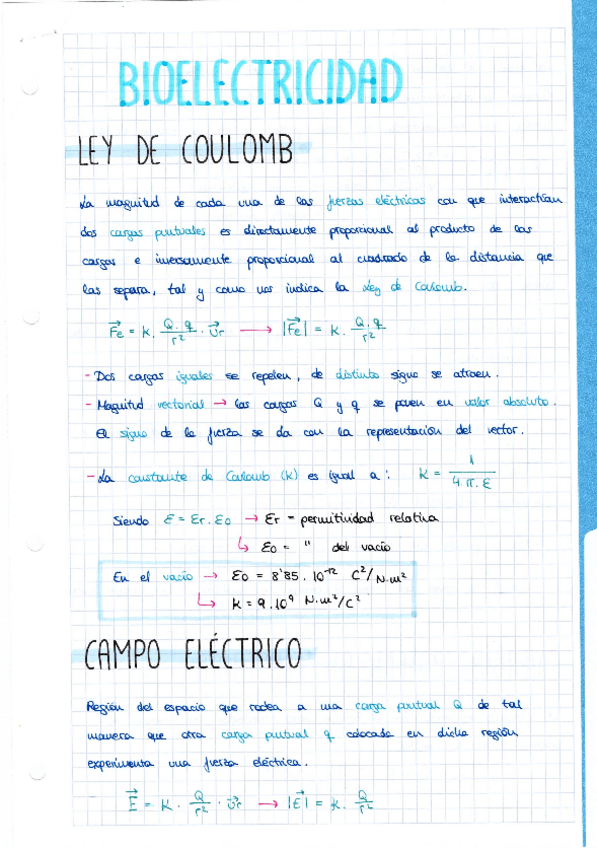 BIOELECTRICIDAD
LEY DE COULOMB
La magnitud de cada una de las fuerzas eléctricas con que interactúan
dos cargas puntuales es directamente proporcional al producto de las
cargas e inversamente proporcional al cuadrado de la distancia que
las separa, tal y como nos indica la Ley de Coulomb.
F⃗e = K. Q.q/r² · u⃗r → |F⃗e| = K. Q.q/r²
- Dos cargas iguales se repelen, de distinto signo se atraen.
- Magnitud vectorial → las cargas Q y q se ponen en valor absoluto.
El signo de la fuerza se da con la representación del vector.
- La constante de Coulomb (K) es igual a: K = 1/4.π.ε
Siendo ε = εr.εo → εr = permitividad relativa
↳ εo = " del vacío
En el vacío → εo = 8'85.10⁻¹² C²/N.m²
↳ K = 9.10⁹ N.m²/C²
CAMPO ELÉCTRICO
Región del espacio que rodea a una carga puntual Q de tal
manera que otra carga puntual q colocada en dicha región
experimenta una fuerza eléctrica.
E⃗ = K · Q/r² · u⃗r → |E⃗| = K. Q/r²